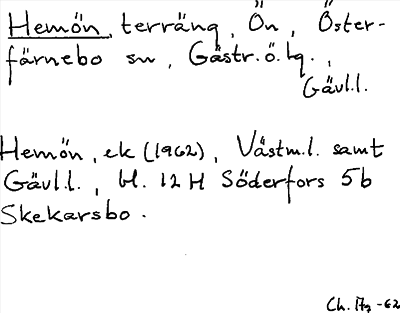 Hemön, terräng, Ön, Öster-
färnebo sn, Gästr.ö.tg.,
Gävl.l.
Hemön, ek (1962), Västm.l. samt
Gävl.l., bl. 12 H Söderfors 5b
Skekarsbo.
Ch. Ag -62